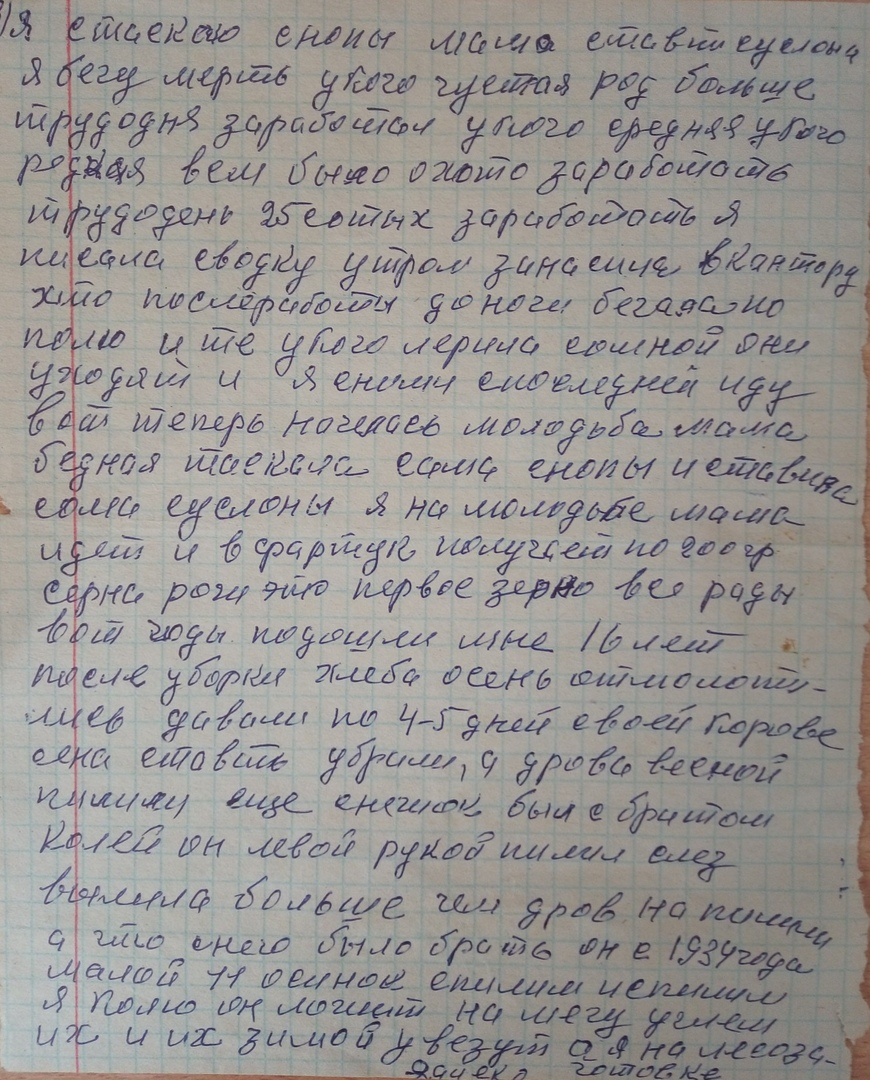 я стаскаю снопы мама ставти суслона
я бегу мерть укого густая род больше
трудодня заработал укого средняя укого
редкая всем было охото заработать
трудодень 25 сотых заработать я
писала сводку утром занасила в кантору
хто послеработы доночи бегала по
полю и те укого мерила сомной они
уходят и я сними споследней иду
вот теперь началась молодьба мама
бедная таскала сама снопы и ставила
сама суслоны я на молодьбе мама
идет и в фартук получает по 200 гр
серна рочи это первое зерно все рады
вот годы подошли мне 16 лет
после уборки хлеба осень отмолоти-
лись давали по 4-5 дней своей корове
сена ставть убрали, а дрова весной
пилили еще снежок был с братом
Колей он левой рукой пилил слез
вылила больше чем дров напилили
а что снего было брать он с 1934 года
малой 11 осинок спилим испилим
я колю он ложит на мегу уклем
их и их зимой увезут а я на лесоза-
готовке